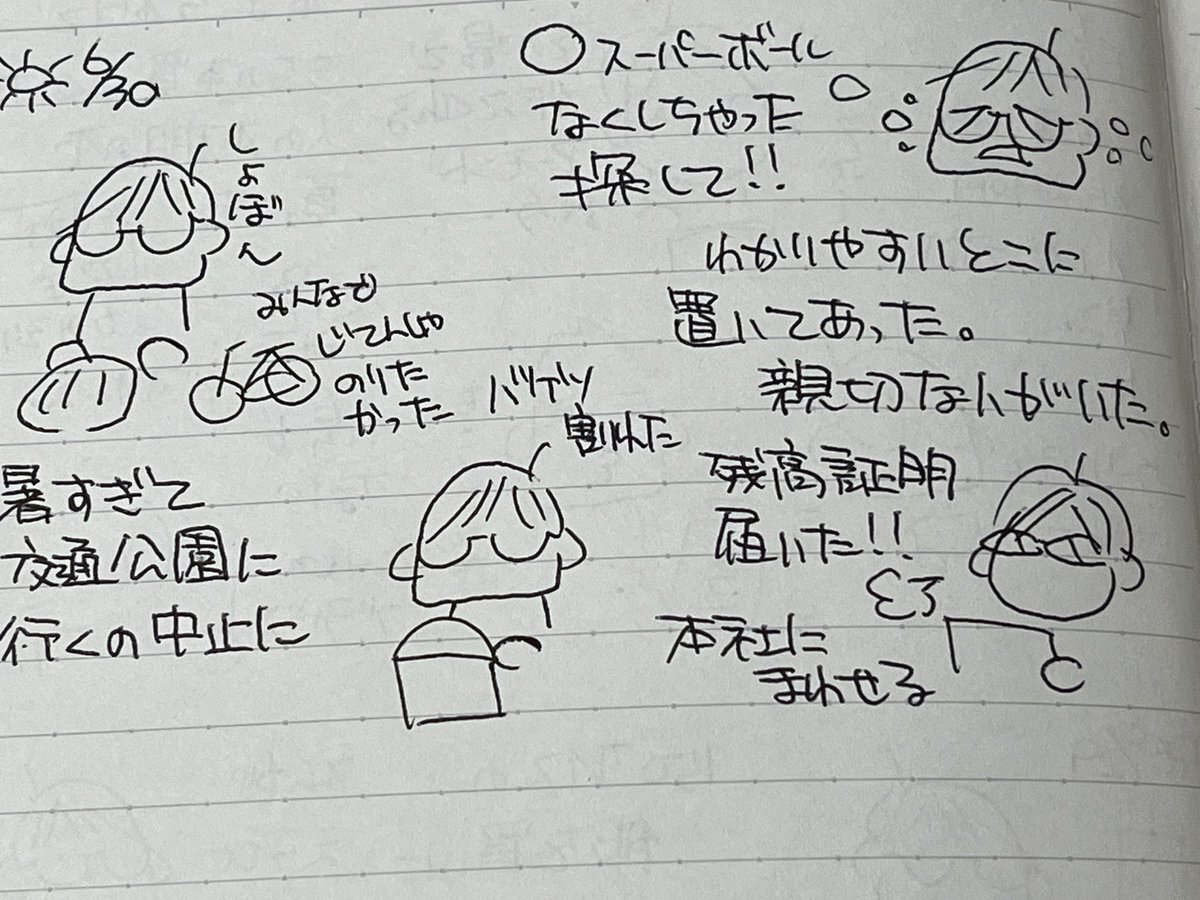 6/30
しょぼん
みんなで
じてんしゃ
のりた
かった
暑すぎて
交通公園に
行くの中止に
スーパーボール
なくしちゃった
探して!!
わかりやすいとこに
置いてあった。
親切な人がいた。
バケツ
割れた
残高証明
届いた!!
本社に
まわせる